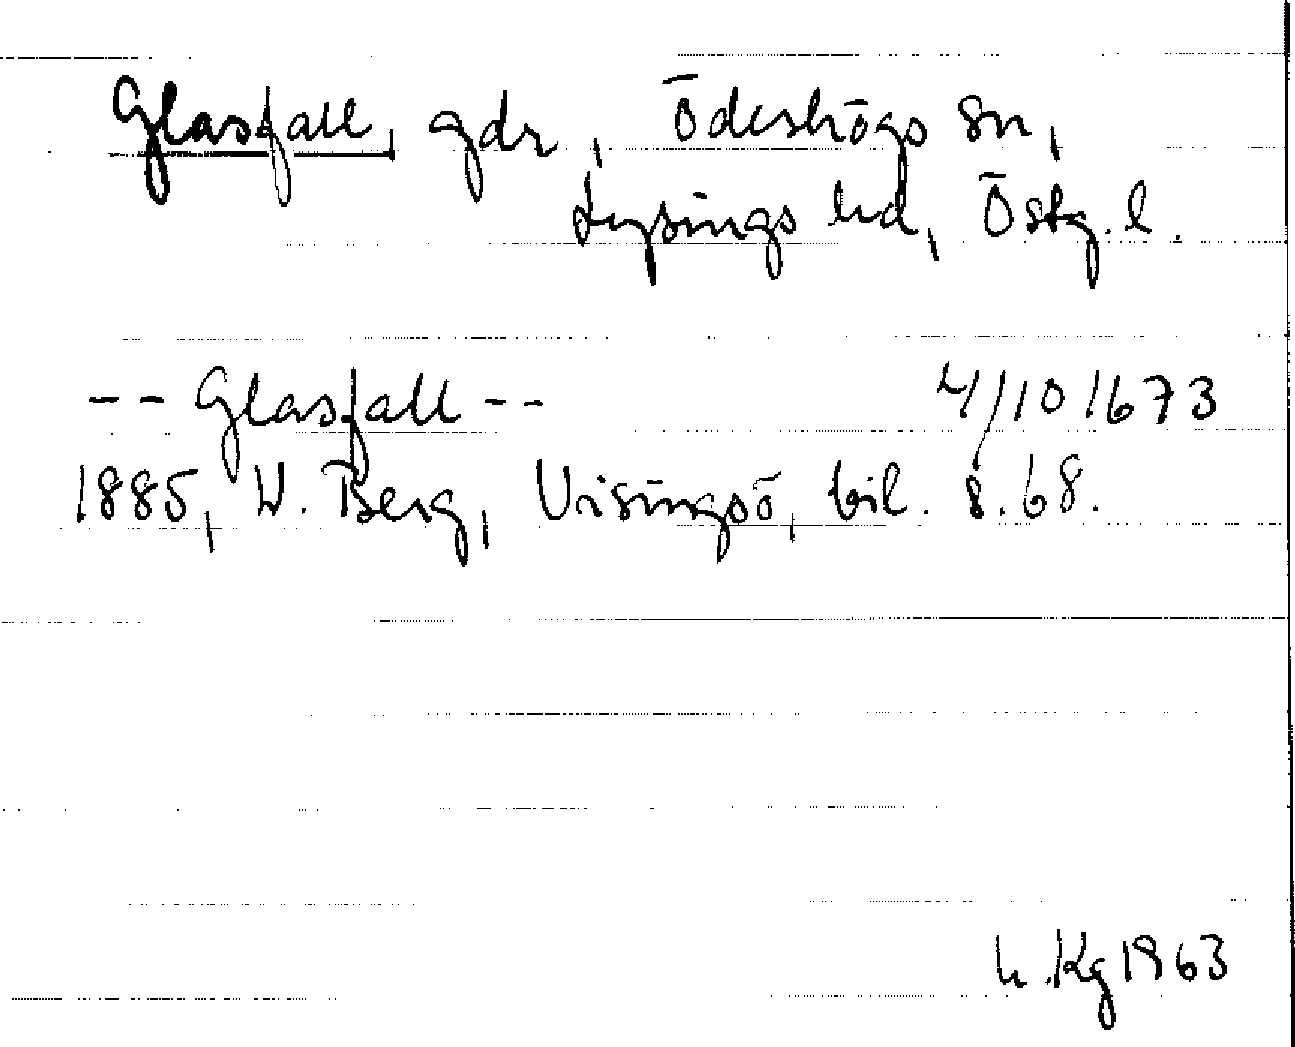 Glasfall, gdr, Ödeshögs sn,
Lysings hd, Östg. l.
-- Glasfall -- 4/10 1673
1885, W. Berg, Visingsö, bil. s. 68.
Kg 1963